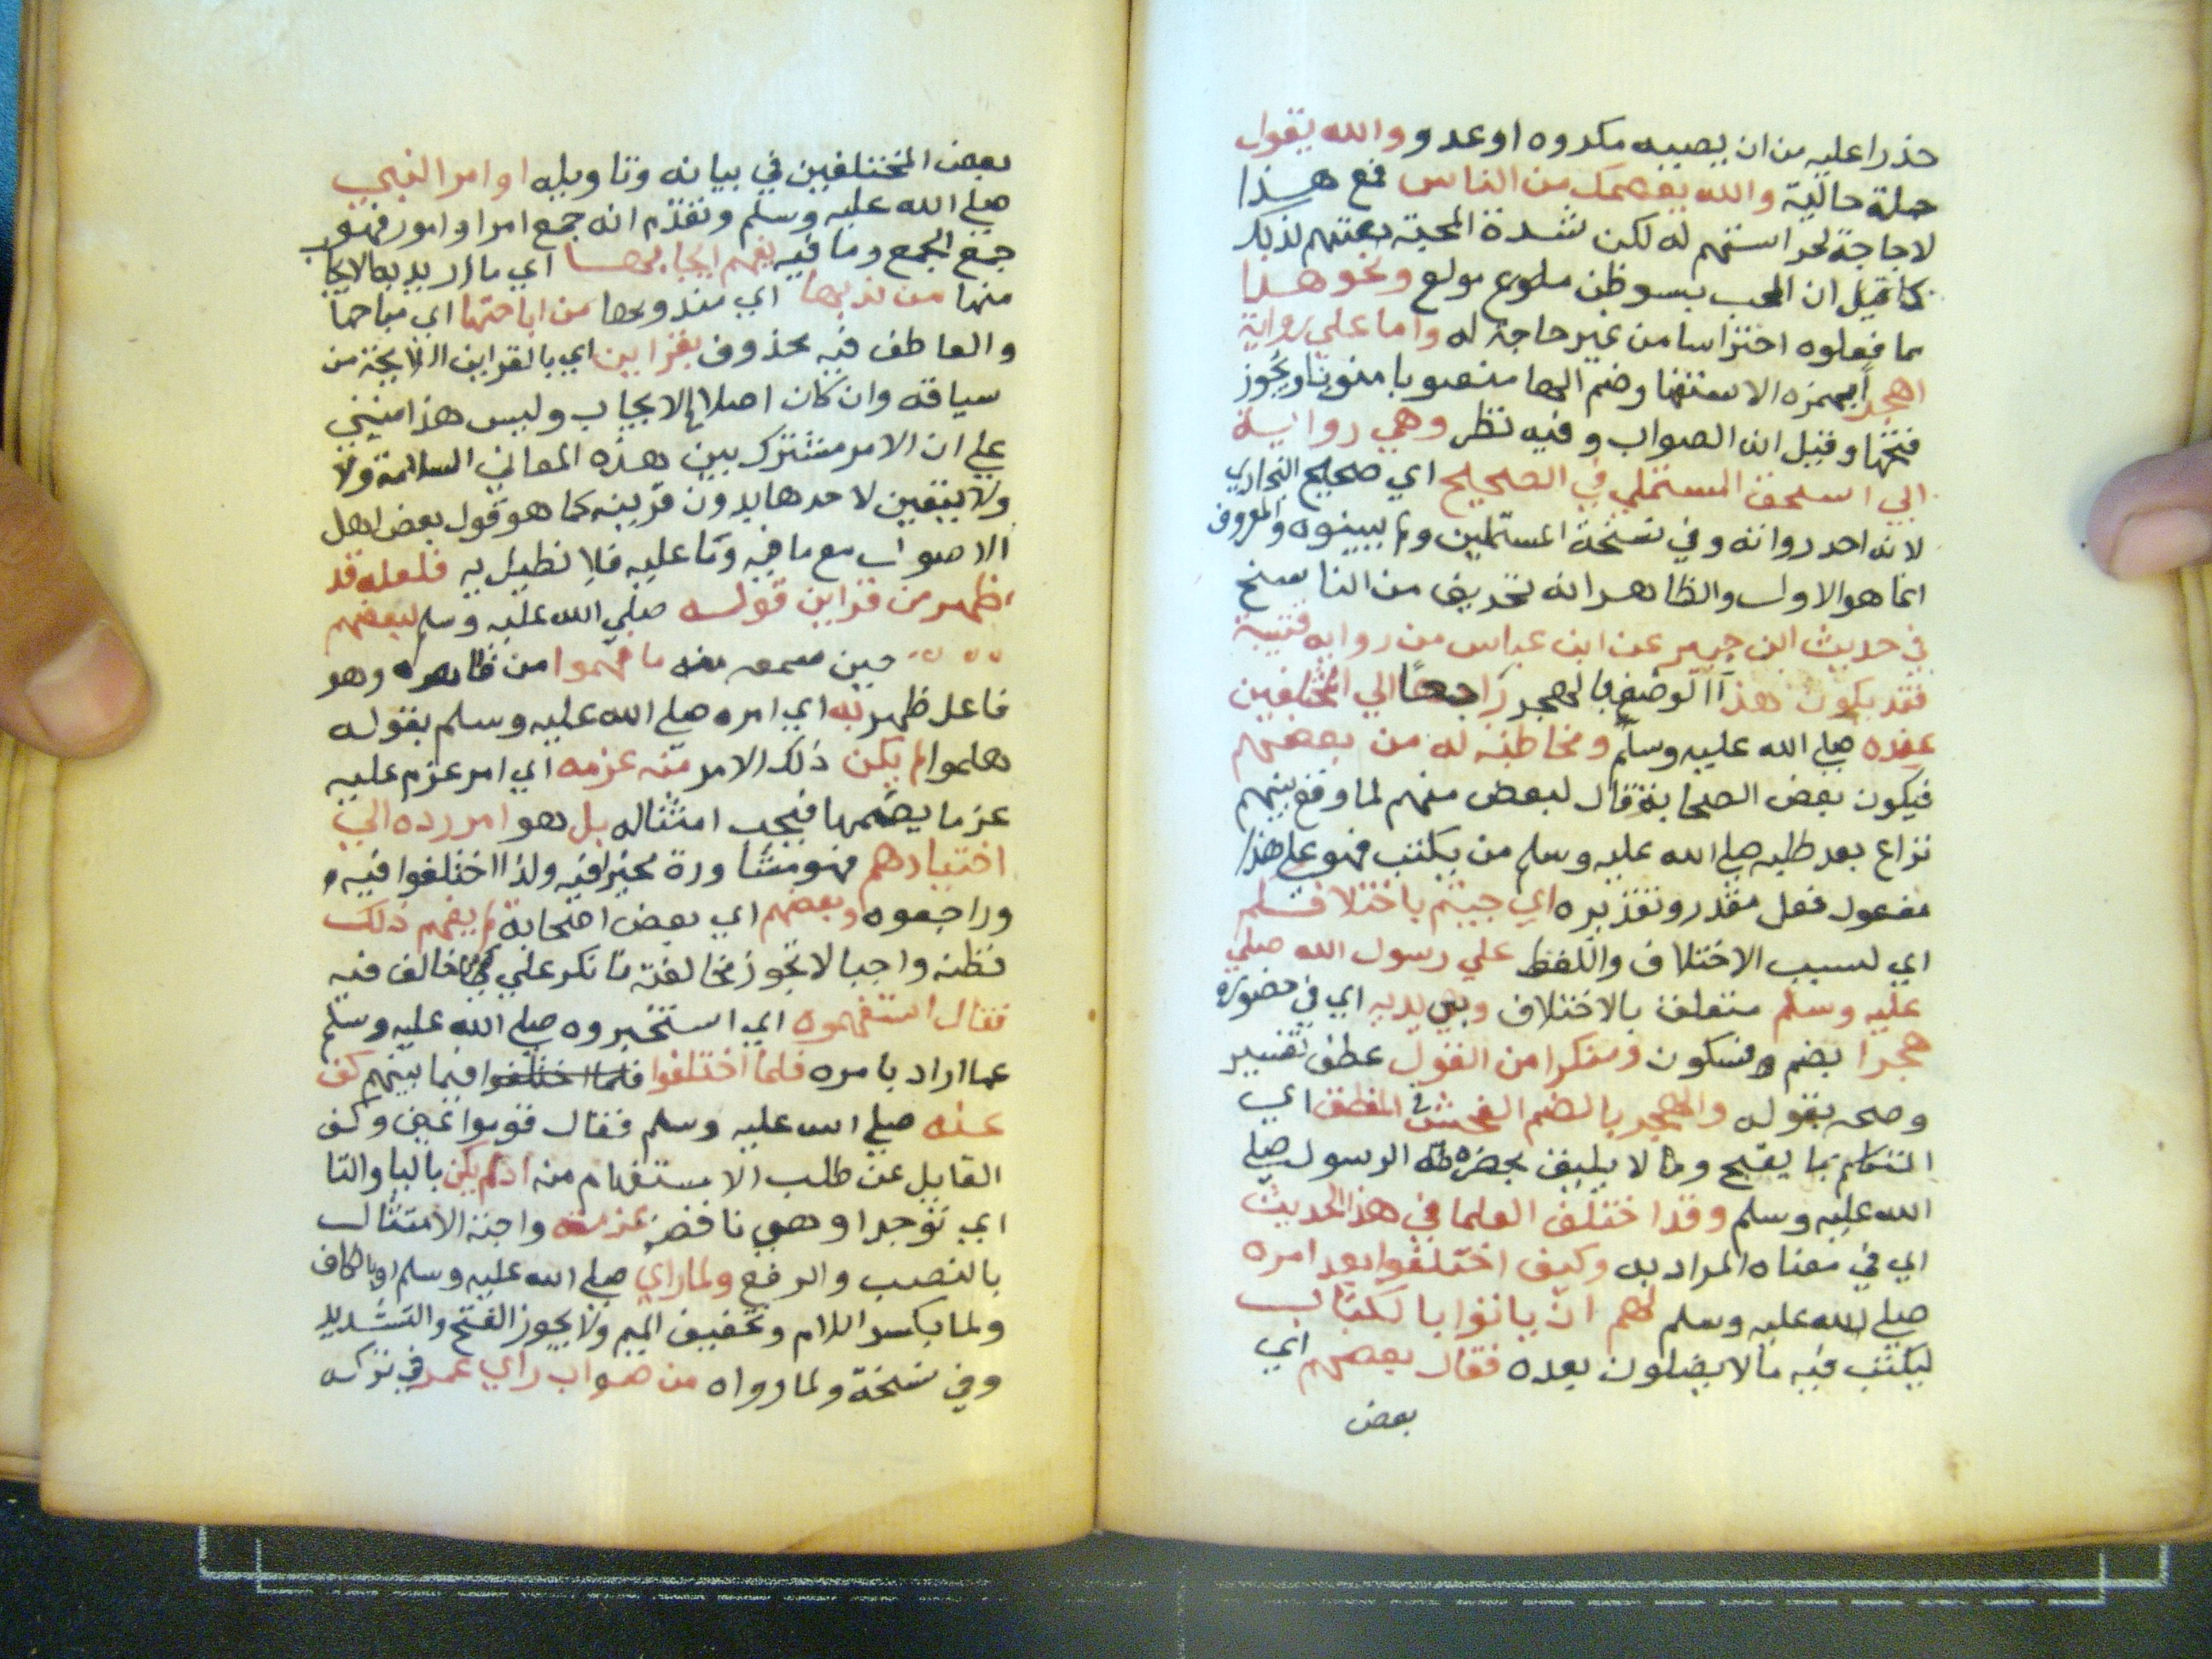 حذرا عليه من ان يصيبه مكروه او عدو والله يقول
جملة حالية والله يعصمك من الناس فمع هذا
لا حاجة لحراستهم له لكن شدة المحبة بعثتهم لذلك
كما قيل ان المحب بسو ظن مولع ونحو هذا
مما فعلوه احتراسا من غير حاجة له واما علي رواية
اهجرا بهمزه الاستفها وضم الها منصوبا منونا ويجوز
فتحها وقيل انه الصواب وفيه نظر وهي رواية
ابي اسحق المستملي في الصحيح اي صحيح البخاري
لانه احد رواته وفي نسخة المستملين ولم يبينوه والمعروف
انما هو الاول والظاهر انه تحريف من الناسخ
في حديث ابن جبير عن ابن عباس من روايه قتيبة
فقد يكون هذا الوصف بالهجر راجعا الي المختلفين
عنده صلي الله عليه وسلم ومخاطبة له من بعضهم
فيكون بعض الصحابة قال لبعض منهم لما وقع بينهم
نزاع بعد طلبه صلي الله عليه وسلم من يكتب فهو علي هذا
مفعول فعل مقدر وتقديره اي جيتم باختلافكم
اي لسبب الاختلاف واللفظ علي رسول الله صلي
عليه وسلم متعلق بالاختلاف وبين يديه اي في حضوره
هجرا بضم وسكون ومنكرا من القول عطف تفسير
وصحه بقوله والهجر بالضم الفحش في المنطق اي
التكلم بما يقبح وما لا يليق بحضرة الرسول صلي
الله عليه وسلم وقد اختلف العلما في هذا الحديث
اي في معناه المراد به وكيف اختلفوا بعد امره
صلي الله عليه وسلم لهم ان ياتوا بالكتاب
ليكتب فيه مالا يضلون بعده فقال بعضهم اي
بعض
بعض المختلفين في بيانه وتاويله اوامر النبي
صلي الله عليه وسلم وتقدم انه جمع امر او امور فهو
جمع الجمع وما فيه يفهم ايجابها اي ما اريد به الايجاب
منها من ندبها اي مندوبها من اباحتها اي مباحها
والعاطف فيه محذوف بقراين اي بالقراين اللايحة من
سياقه وان كان اصلا الايجاب وليس هذا مبني
علي ان الامر مشترك بين هذه المعاني السالمة ولا
ولا يتعين لاحدها بدون قرينه كما هو قول بعض اهل
الاصول مع ما فيه وما عليه فلا نطيل به فلعله قد
ظهر من قراين قوله صلي الله عليه وسلم لبعضهم
حين سمعه منه ما فهموا من ظاهره وهو
فاعل ظهر به اي امره صلي الله عليه وسلم بقوله
هلموا لم يكن ذلك الامر منه عزمه اي امر عزم عليه
عزما يصممها فيجب امتثاله بل هو امر رده الي
اختيارهم فهو مشاورة مخير فيه ولذا اختلفوا فيه و
وراجعوه وبعضهم اي بعض اصحابة لم يفهم ذلك
فظنه واجبا لا تجوز مخالفته فانكر علي من خالف فيه
فقال استفهموه اي استخبروه صلي الله عليه وسلم
عما اراد بامره فلما اختلفوا فلما اختلفوا فيما بينهم كف
عنه صلي الله عليه وسلم فقال قوموا عني وكف
القايل عن طلب الاستفهام منه اذ لم يكن باليا والتا
اي توجد او هي ناقصة عزمة واجبة الامتثال
بالنصب والرفع ولما راي صلي الله عليه وسلم او بالكاف
ولما بكسر اللام وتخفيف الميم ولا يجوز الفتح والتشديد
وفي نسخة ولما رواه من صواب راي عمر في تركه